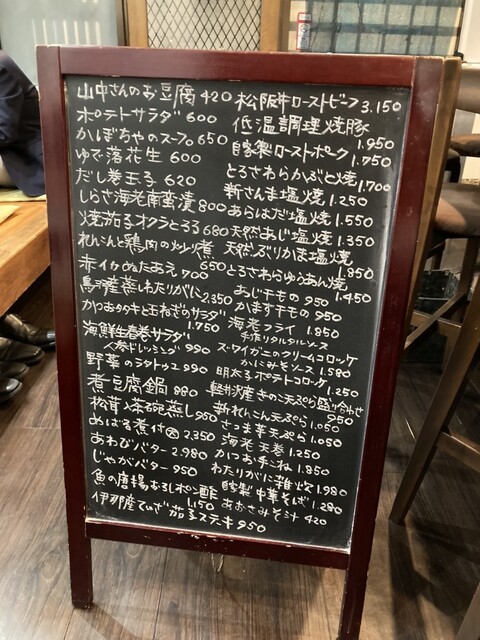 山中さんのお豆腐 420
ポテトサラダ 600
かぼちゃのスープ 650
ゆで落花生 600
だし巻玉子 620
しらさ海老南蛮漬 800
焼茄子オクラとろろ 680
れんこんと鶏肉の炒り煮 650
赤イカぬたあえ 900
鳥羽産蒸しわたりがに 2,350
かつおタタキと玉ねぎのサラダ 1,750
海鮮生春巻サラダ
人参ドレッシング 990
野菜のラタトゥユ 990
煮豆腐鍋 880
松茸入茶碗蒸し 950
めばる煮付 大 2,350
あわびバター 2,980
じゃがバター 950
魚の唐揚おろしポン酢 1,150
伊那産ていざ茄子ステーキ 950
松阪牛ローストビーフ 3,150
低温調理焼豚 1,950
自家製ローストポーク 1,750
とろさわらかぶと焼 1,700
新さんま塩焼 1,250
あらはだ塩焼 1,550
天然あじ塩焼 1,350
天然ぶりかま塩焼 1,850
とろさわらゆうあん焼 1,450
あじ干もの 950
かます干もの 950
海老フライ 1,850
手作りタルタルソース
ズワイガニのクリームコロッケ
かにみそソース 1,580
明太子ポテトコロッケ 1,250
軽井沢産きのこ天ぷら盛り合せ 950
新れんこん天ぷら 1,050
さつま芋天ぷら 1,050
海老天巻 1,250
かつお手こね 1,850
わたりがに雑炊 1,980
自家製中華そば 1,280
あおさみそ汁 420